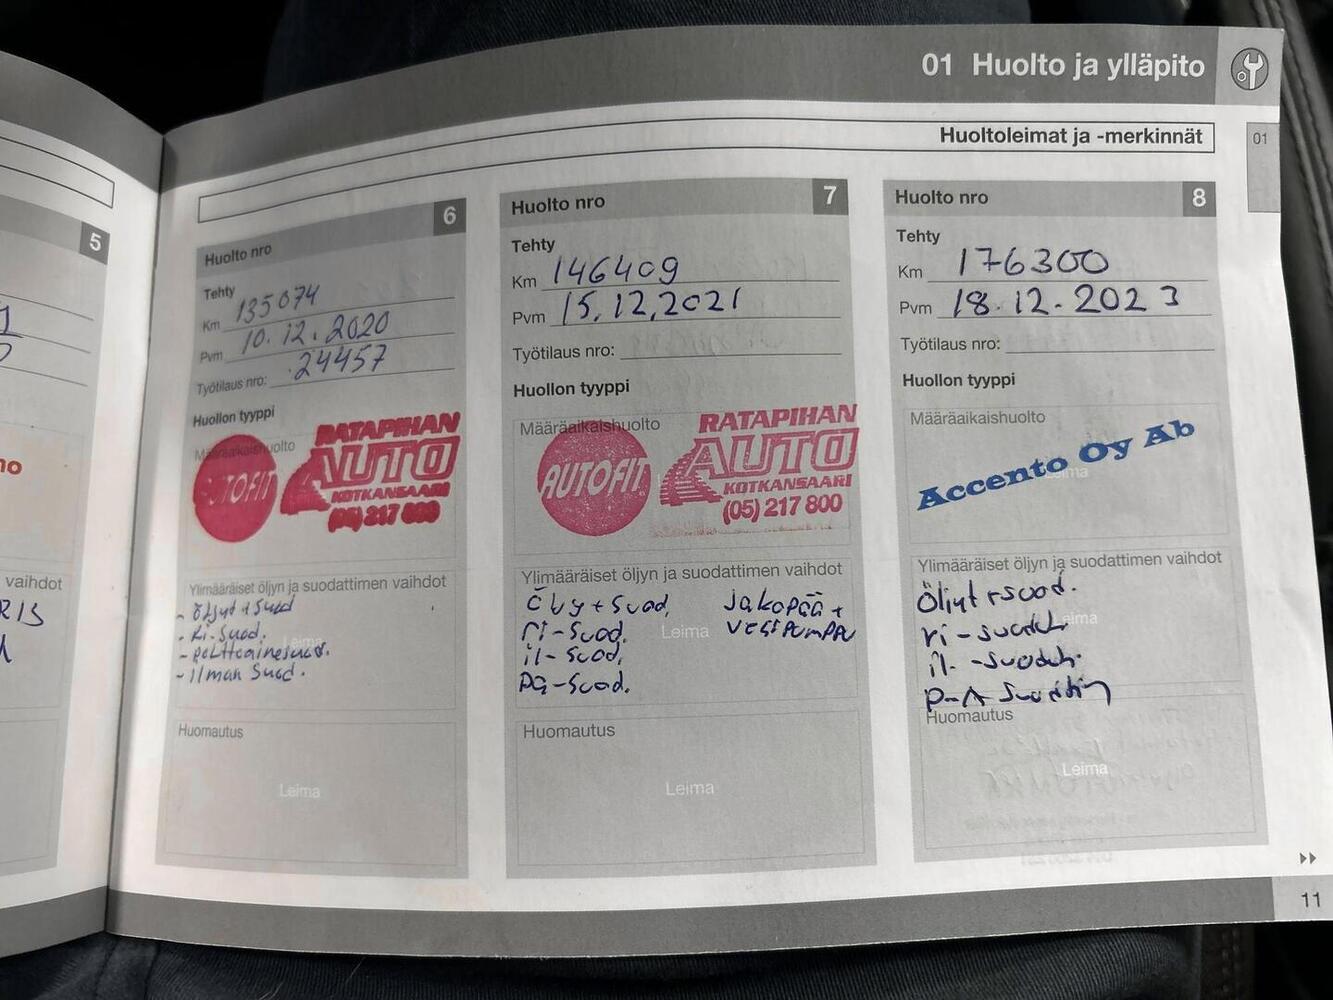 01 Huolto ja ylläpito
Huoltoleimat ja -merkinnät
01
5
no
vaihdot
6
Huolto nro
Tehty
Km 135074
Pvm 10.12.2020
Työtilaus nro: 24457
Huollon tyyppi
Määräaikaishuolto
AUTOFIT
RATAPIHAN
AUTO
KOTKANSAARI
(05) 217 800
Ylimääräiset öljyn ja suodattimen vaihdot
- öljyt + suod
- Ri-Suod.
- polttoainesuod.
- ilman Suod.
Leima
Huomautus
Leima
7
Huolto nro
Tehty
Km 146409
Pvm 15.12.2021
Työtilaus nro:
Huollon tyyppi
Määräaikaishuolto
AUTOFIT
RATAPIHAN
AUTO
KOTKANSAARI
(05) 217 800
Ylimääräiset öljyn ja suodattimen vaihdot
+ Suod, jakopää +
ri-Suod. Leima vesipumppu
il-Suod.
PA-Suod.
Huomautus
Leima
8
Huolto nro
Tehty
Km 176300
Pvm 18.12.2023
Työtilaus nro:
Huollon tyyppi
Määräaikaishuolto
Accento Oy Ab
Leima
Ylimääräiset öljyn ja suodattimen vaihdot
Öljyt + suod.
ri-suodch
Leima
il-suodch.
P-A
Huomautus
Leima
11